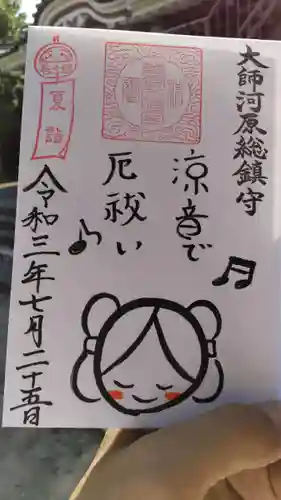 大師河原総鎮守
涼音で
厄祓い
夏詣
令和三年七月二十五日